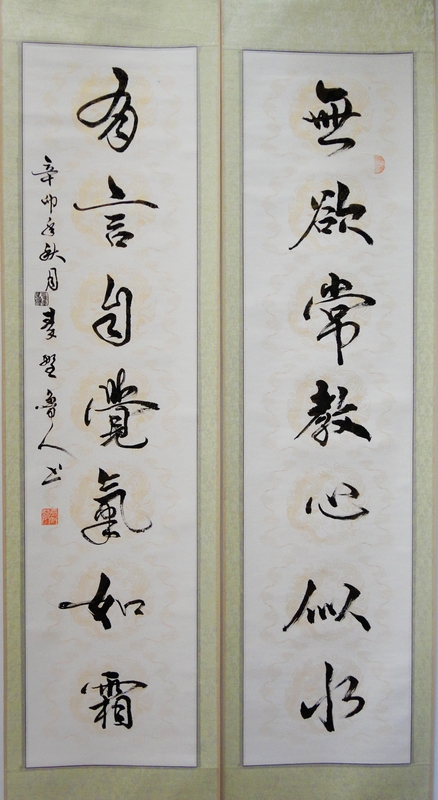 無欲常教心似水
有言自覺氣如霜
辛卯年秋月
魯人书